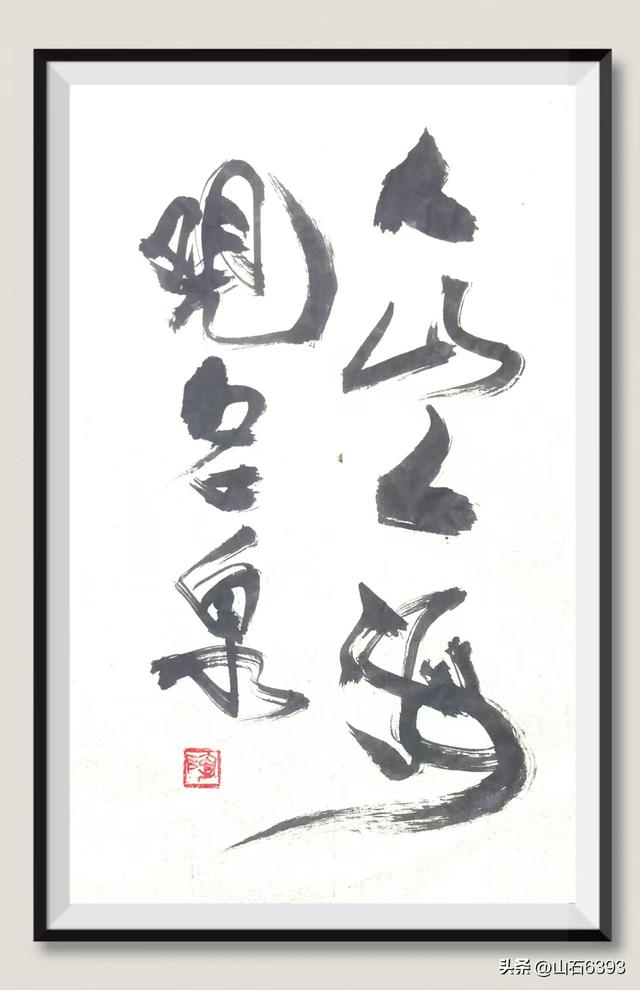 人山人海
观名泉
头条 @山石6393